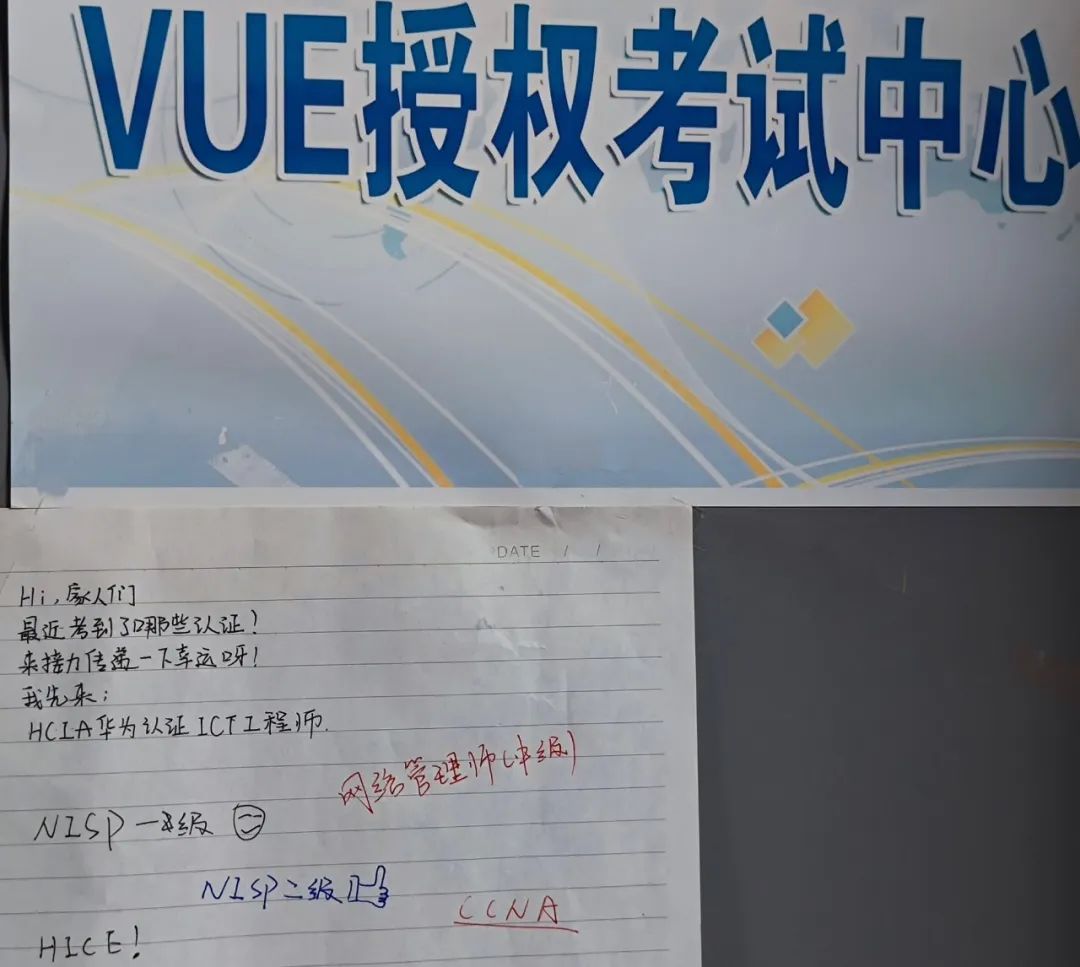 VUE授权考试中心
DATE / /
Hi,家人们
最近考到了哪些认证?
来接力传递一下幸运呀!
我先来:
HCIA华为认证ICT工程师.
网络管理师(中级)
NISP一级
NISP二级
CCNA
HICE!